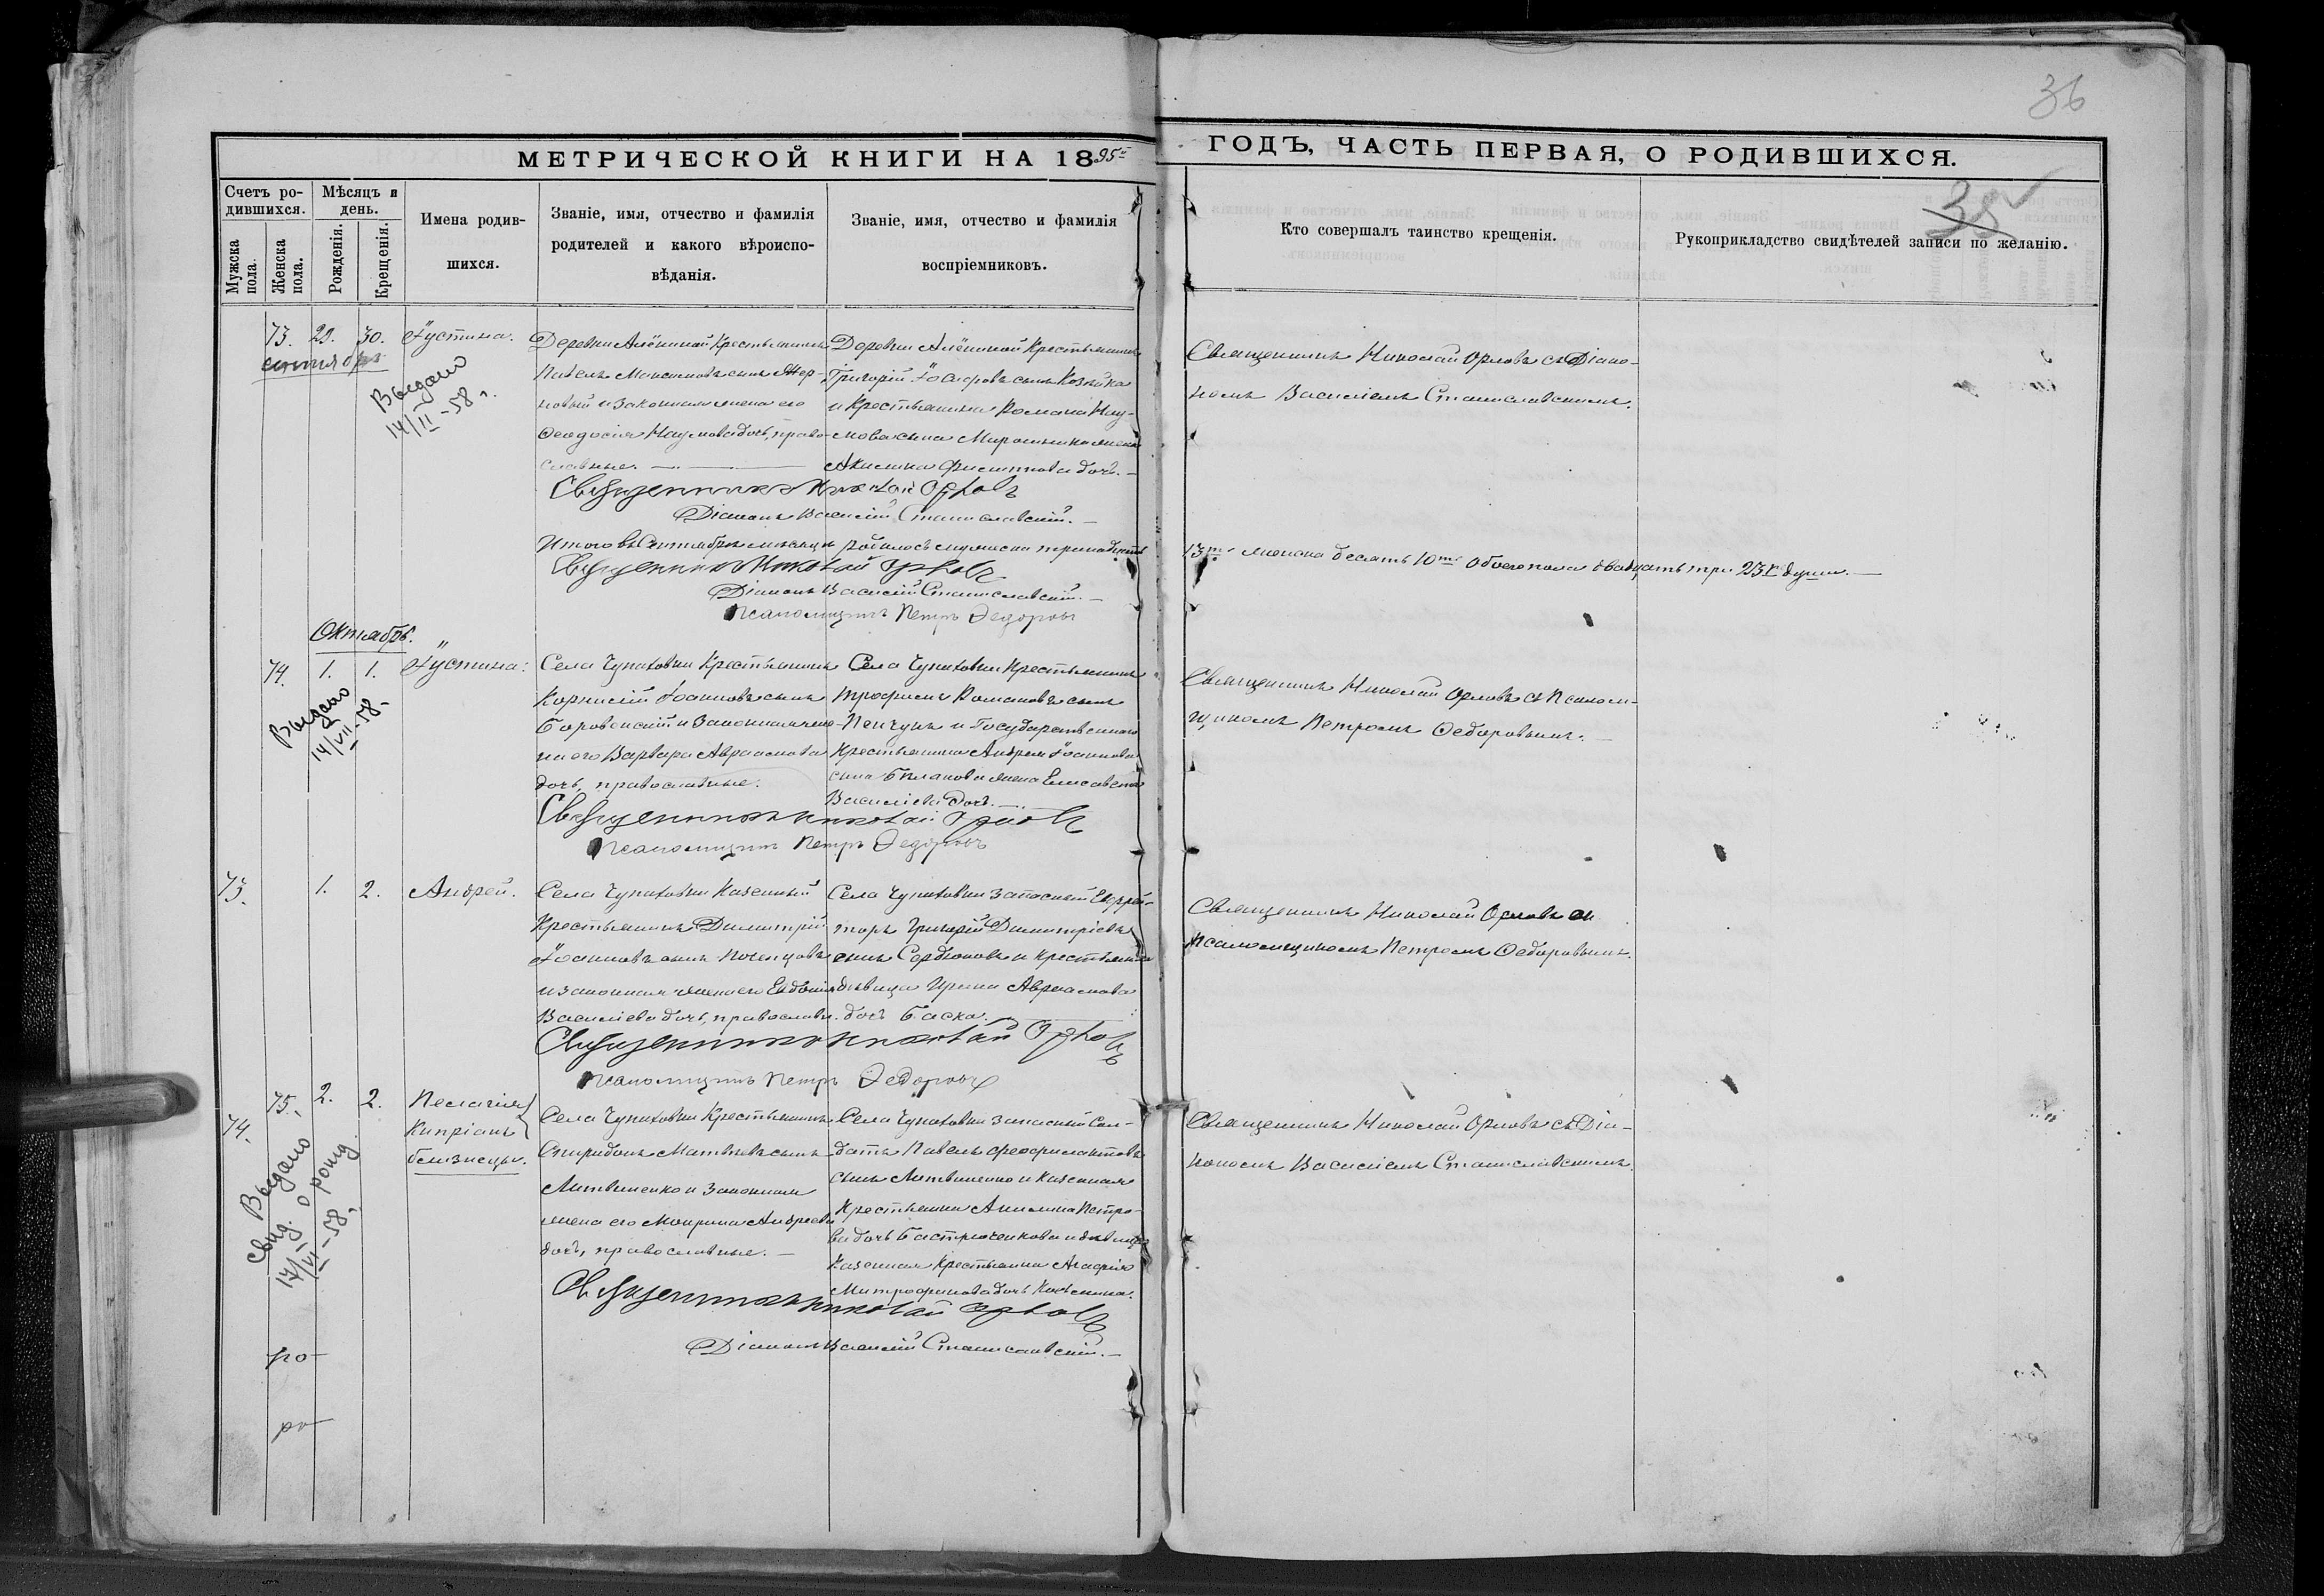 36
МЕТРИЧЕСКОЙ КНИГИ НА 1895
ГОДЪ, ЧАСТЬ ПЕРВАЯ, О РОДИВШИХСЯ.
35
Счетъ ро-
дившихся.
Мужска
пола.
Женска
пола.
Мѣсяцъ и
день.
Рожденія.
Крещенія.
Имена родив-
шихся.
Званіе, имя, отчество и фамилія
родителей и какого вѣроиспо-
вѣданія.
Званіе, имя, отчество и фамилія
воспріемниковъ.
Кто совершалъ таинство крещенія.
Рукоприкладство свидѣтелей записи по желанію.
73. 29. 30. Іустина.
сентября
Выдано
14/II-58 г.
Деревни Алёниной Крестьянинъ
Павелъ Максимовъ сынъ Жер-
новый и законная жена его
Ѳеодосія Наумова дочь, право-
славные.
Деревни Алёниной Крестьянинъ
Григорій Іосифовъ сынъ Козейка
и Крестьянина Романа Нау-
мова сына Мирошника жена
Акилина Филиппова дочь.
Священникъ Николай Орловъ съ Діако-
номъ Василіемъ Станиславскимъ.
Священникъ Николай Орловъ
Діаконъ Василій Станиславскій.
Итого въ Сентябрѣ мѣсяцѣ родилось мужска тринадцать
13ть женска десять 10ть обоего пола двадцать три 23и души.
Священникъ Николай Орловъ
Діаконъ Василій Станиславскій.
Псаломщикъ Петръ Федоровъ
Октябрь.
74. 1. 1. Іустина.
Выдано
14/VII-58-
Села Чупаховки Крестьянинъ
Корнилій Іоанновъ сынъ
Боровенскій и Законная же-
на его Варвара Авраамова
дочь, православные.
Села Чупаховки Крестьянинъ
Трофимъ Романовъ сынъ
Пенчукъ и Государственнаго
Крестьянина Андрея Іоаннова
сына жена Елисавета
Василіева дочь.
Священникъ Николай Орловъ съ Псалом-
щикомъ Петромъ Ѳедоровымъ.
Священникъ Николай Орловъ
Псаломщикъ Петръ Федоровъ
73. 1. 2. Андрей.
Села Чупаховки Казенный
Крестьянинъ Димитрій
Іоанновъ сынъ Поченцовъ
и законная жена его Евдокія
Василіева дочь, православн.
Села Чупаховки Запасный Ефрей-
торъ Григорій Димитріевъ
сынъ Сердюковъ и крестьянка
дѣвица Ирина Авраамова
дочь Баска.
Священникъ Николай Орловъ съ
Псаломщикомъ Петромъ Ѳедоровымъ.
Священникъ Николай Орловъ
Псаломщикъ Петръ Федоровъ
75. 2. 2. Пелагія
74. Кипріанъ
близнецы.
Выдано
свид. о рожд.
17/VII-58 г.
Села Чупаховки Крестьянинъ
Спиридонъ Матвѣевъ сынъ
Литвиненко и Законная
жена его Мокрина Андреева
дочь, православные.
Села Чупаховки запасный Сол-
датъ Павелъ Феофилактовъ
сынъ Литвиненко и Казенная
Крестьянка Акилина Петро-
ва дочь Бастрюченкова и дѣвица
Казенная Крестьянка Агафія
Митрофанова дочь
Священникъ Николай Орловъ съ Діа-
кономъ Василіемъ Станиславскимъ.
Священникъ Николай Орловъ
Діаконъ Василій Станиславскій.
ро
ро